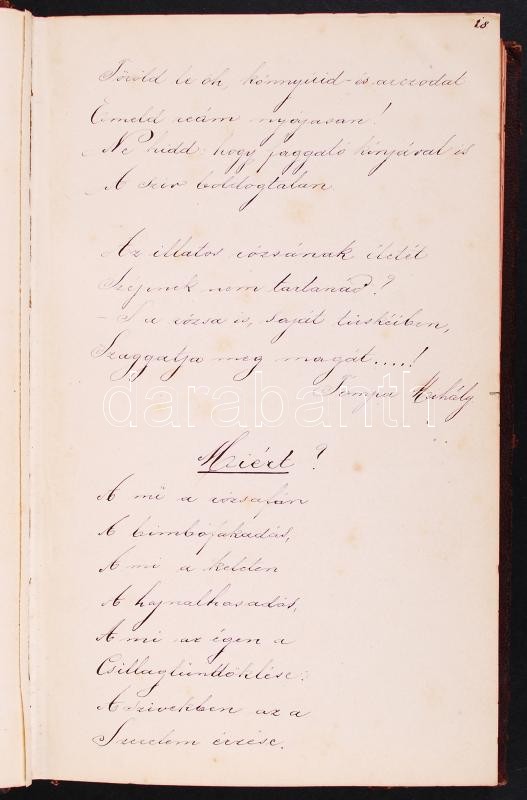 18
Töröld le oh, könnyeid - és arczodat
Emeld reám nyájasan!
Ne hidd: hogy faggató kínjával is
A sziv boldogtalan.
Az illatos rózsának életét
Szépnek nem tartanád?
- S a rózsa is, saját tüskéiben,
Szaggatja meg magát.....!
Tompa Mihály
darabanth
Miért?
A mi a rózsafán
A bimbófakadás,
A mi a keleten
A hajnalhasadás,
A mi az égen a
Csillagtündöklése:
A szivekben az a
Szerelem érzése.